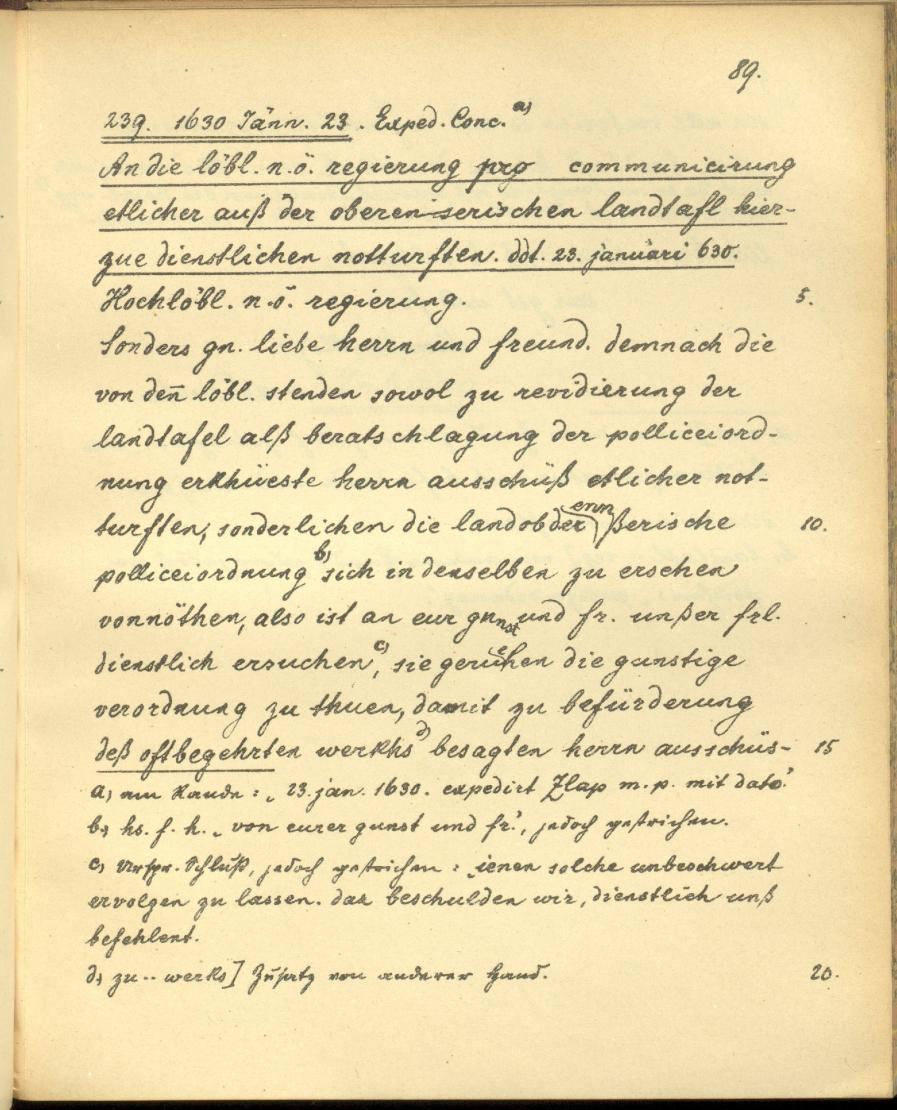 89.
239. 1630 Jänn. 23. Exped. Conc. a)
An die löbl. n.ö. regierung pro communicirung
etlicher auß der oberenserischen landtafl hier-
zue dienstlichen notturften. ddt. 23. januari 630.
Hochlöbl. n.ö. regierung. 5.
Sonders gn. liebe herrn und freund. demnach die
von den̄ löbl. stenden sowol zu revidierung der
landtafel alß beratschlagung der polliceiord-
nung erkhüeste herrn ausschüß etlicher not-
turften, sonderlichen die landobderennßerische 10.
polliceiordnung b) sich in denselben zu ersehen
vonnöthen, also ist an eur gunst und fr. unßer frl.
dienstlich ersuchen c), sie geruehen die gunstige
verordnung zu thuen, damit zu befürderung
deß oftbegehrten werkhs d) besagten herrn ausschüs- 15
a) am Rande: „23. jan. 1630. expedirt Zlap m. p. mit dato".
b) hs. f. h. „von eurer gunst und fr.", jedoch gestrichen.
c) Urspr. Schluß, jedoch gestrichen: „ienen solche unbeschwert
ervolgen zu lassen. daz beschulden wir, dienstlich unß
befehlent.
d) zu -- werks] Zusatz von anderer Hand. 20.